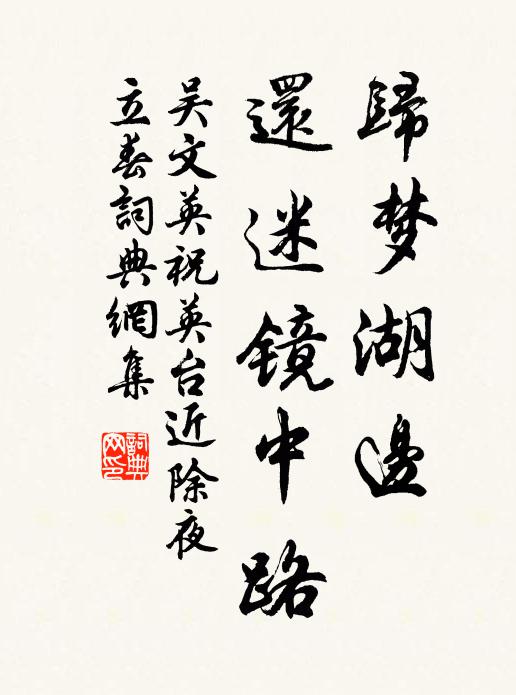 歸梦湖邊
還迷鏡中路
吴文英祝英台近除夜
立春詞典網集
詞典网印